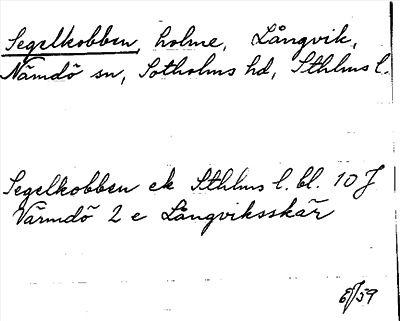 Segelkobben, holme, Långvik,
Nämdö sn, Sotholms hd, Sthlms l.
Segelkobben ek Sthlms l. bl. 10 J
Värmdö 2 e Långviksskär
59